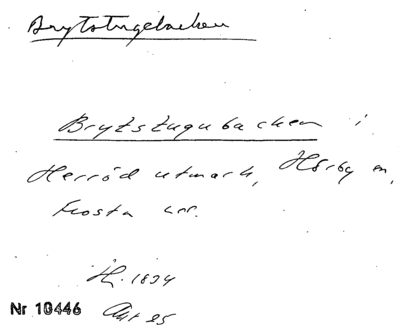 Brytstugebacken
Brytstugubacken i
Herröd utmark, Hörby sn,
Frosta hd.
H. 1834
Akt 25
Nr 10446